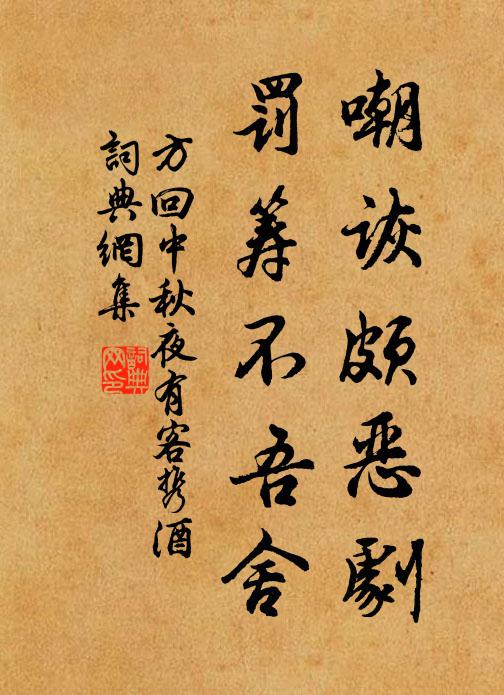 嘲詼頗惡劇
罰籌不吾舍
方回中秋夜有客携酒
詞典網集
詞典網印